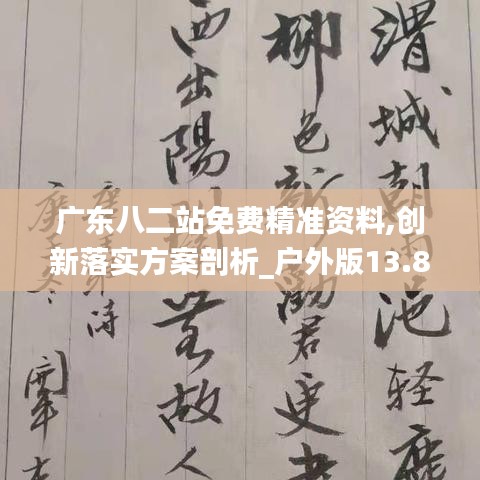 渭城朝雨浥轻
柳色新勸君更
西出陽關无故人
广东八二站免费精准资料,创
新落实方案剖析_户外版13.8